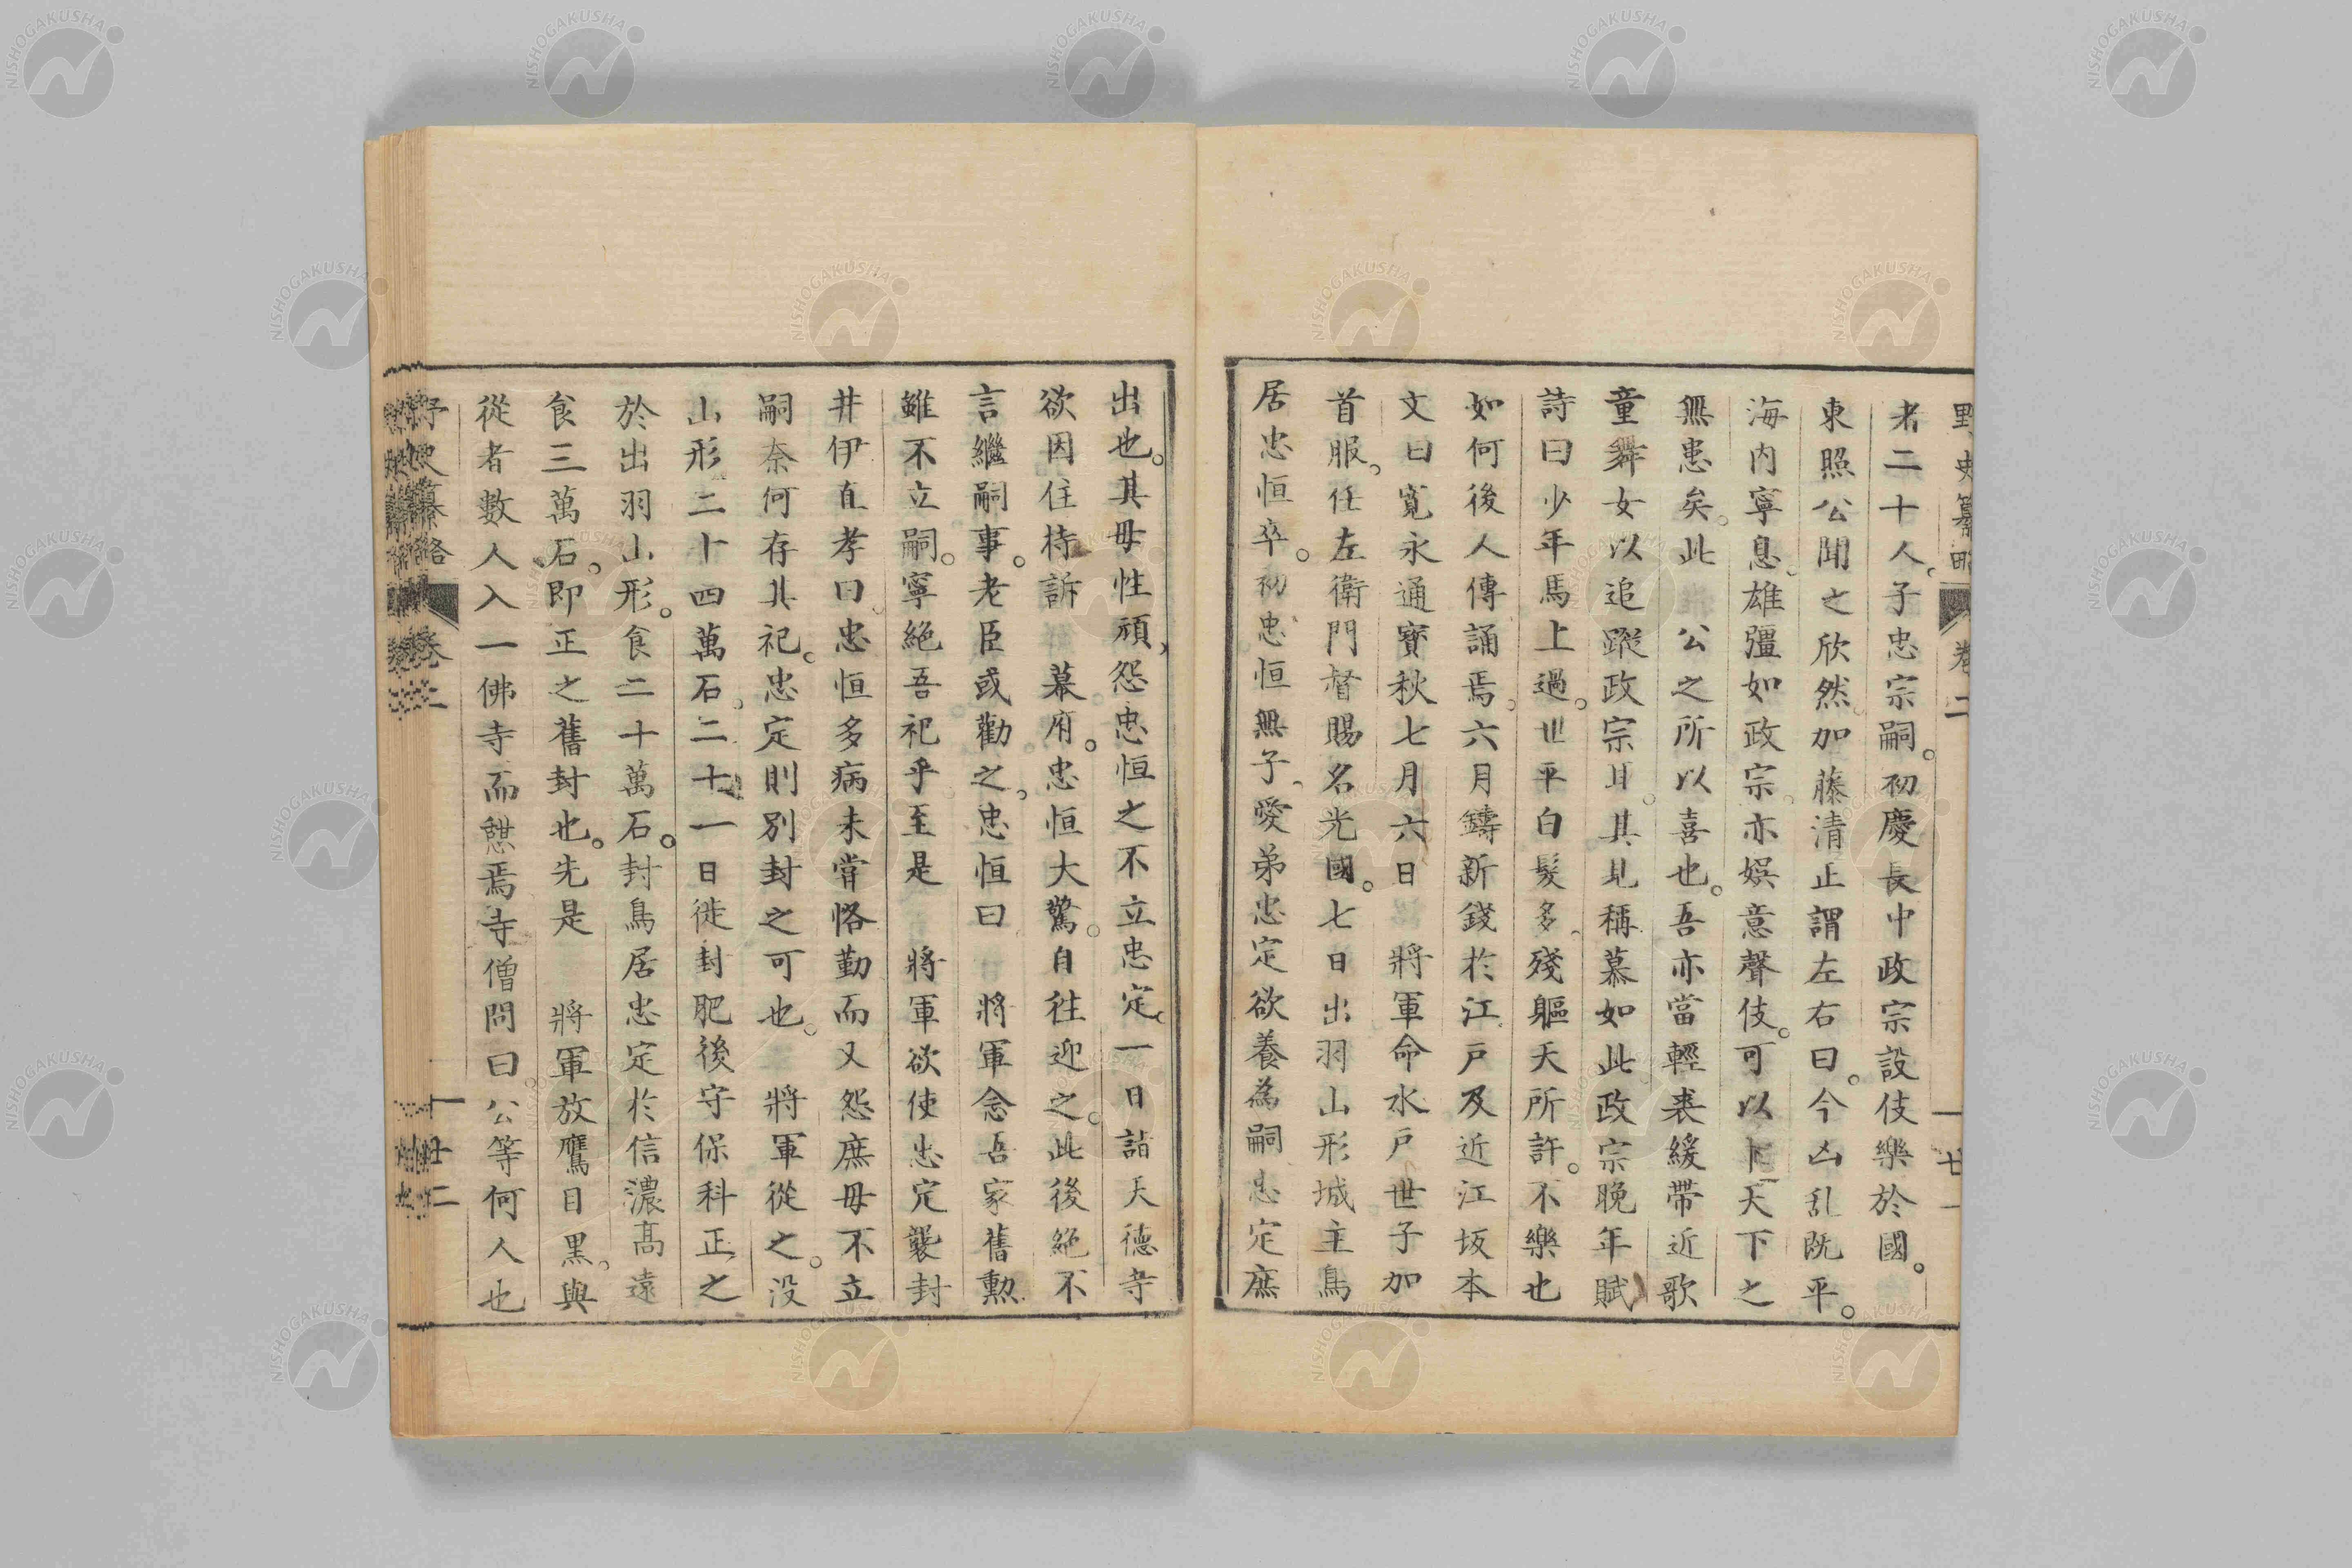 野史纂略 卷二
者二十人。子忠宗嗣。初慶長中政宗設伎樂於國。
東照公聞之欣然。加藤清正謂左右曰。今凶乱既平。
海内寧息。雄彊如政宗。亦娯意聲伎。可以卜天下之
無患矣。此 公之所以喜也。吾亦當輕裘緩帶近歌
童舞女以追蹤政宗耳。其見稱慕如此政宗晩年賦
詩曰少年馬上過。世平白髮多。殘軀天所許。不樂也
如何後人傳誦焉。六月鑄新錢於江戸及近江坂本
文曰寛永通寳秋七月六日 將軍命水戸世子加
首服。任左衛門督賜名光國。七日出羽山形城主鳥
居忠恒卒。初忠恒無子、愛弟忠定欲養為嗣忠定庶
出也。其母性頑、怨忠恒之不立忠定。一日詣天德寺
欲因住持訴 幕府。忠恒大驚。自往迎之。此後絶不
言繼嗣事。老臣或勸之。忠恒曰 將軍念吾家舊勲
雖不立嗣。寧絶吾祀乎至是 將軍欲使忠定襲封
井伊直孝曰。忠恒多病未甞恪勤而又怨庶母不立
嗣奈何存其祀。忠定則別封之可也。 將軍從之。没
山形二十四萬石。二十一日徙封肥後守保科正之
於出羽山形。食二十萬石。封鳥居忠定於信濃高遠
食三萬石。即正之舊封也。先是 將軍放鷹目黒。與
從者數人入一佛寺而憇焉寺僧問曰公等何人也
野史纂略 卷二
NISHOGAKUSHA